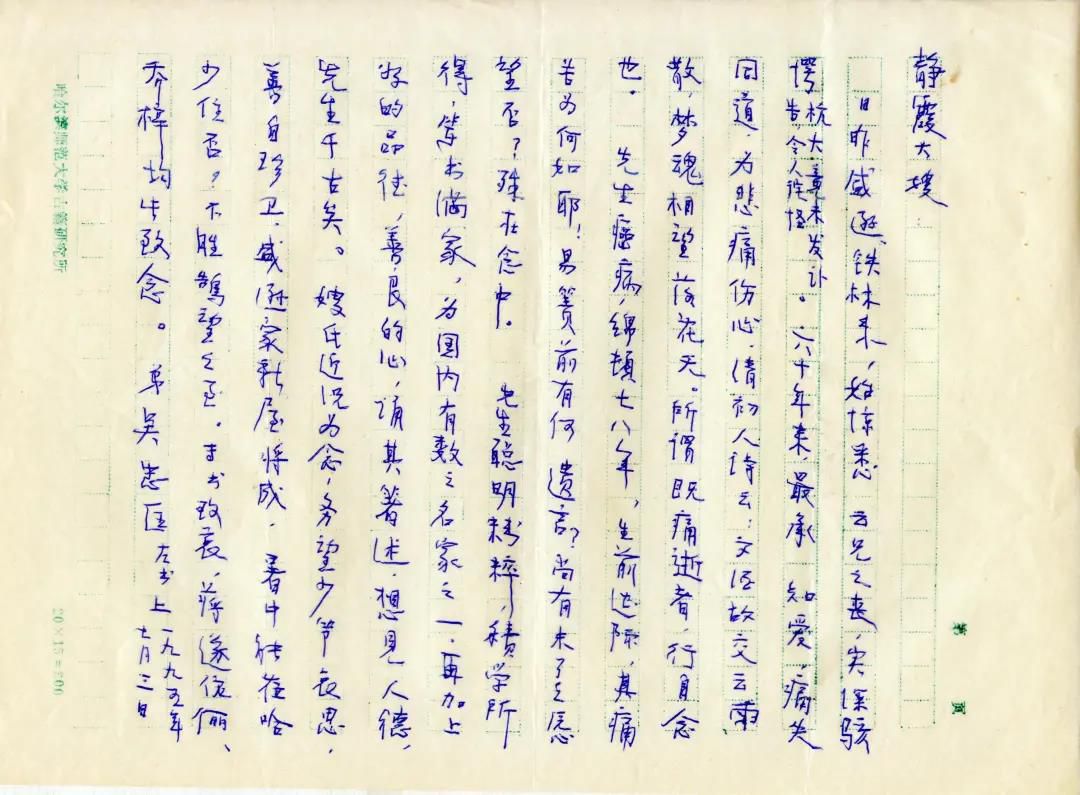 第 页
静霞大嫂：
日昨盛逊、铁林来，始惊悉 云兄之丧，实深骇
愕杭大竟未发讣告，令人诧怪。六十年来，最承 知爱，痛失
同道，为悲痛伤心，清初人诗云：文酒故交云雨
散，梦魂相望落花天。所谓既痛逝者，行自念
也。 先生癌病，绵顿七八年，生前，其痛
苦为何如耶！易箦前有何 遗言？尚有未了之愿
望否？殊在念中。 先生聪明粹，积学所
得，等书满家，为国内有数之名家之一，再加上
好的品德，善良的心，诵其著述，想见人德，
先生千古矣。 嫂氏近况为念，务望少节哀思，
善自珍卫，盛逊家新屋将成，暑中能莅哈
少住否？不胜鹄望之至。专书致哀，蒋遂伉俪、
乔梓均此致念。 弟吴忠匡左书上 一九九五年
七月三日
哈尔滨师范大学古籍研究所
20×15=300